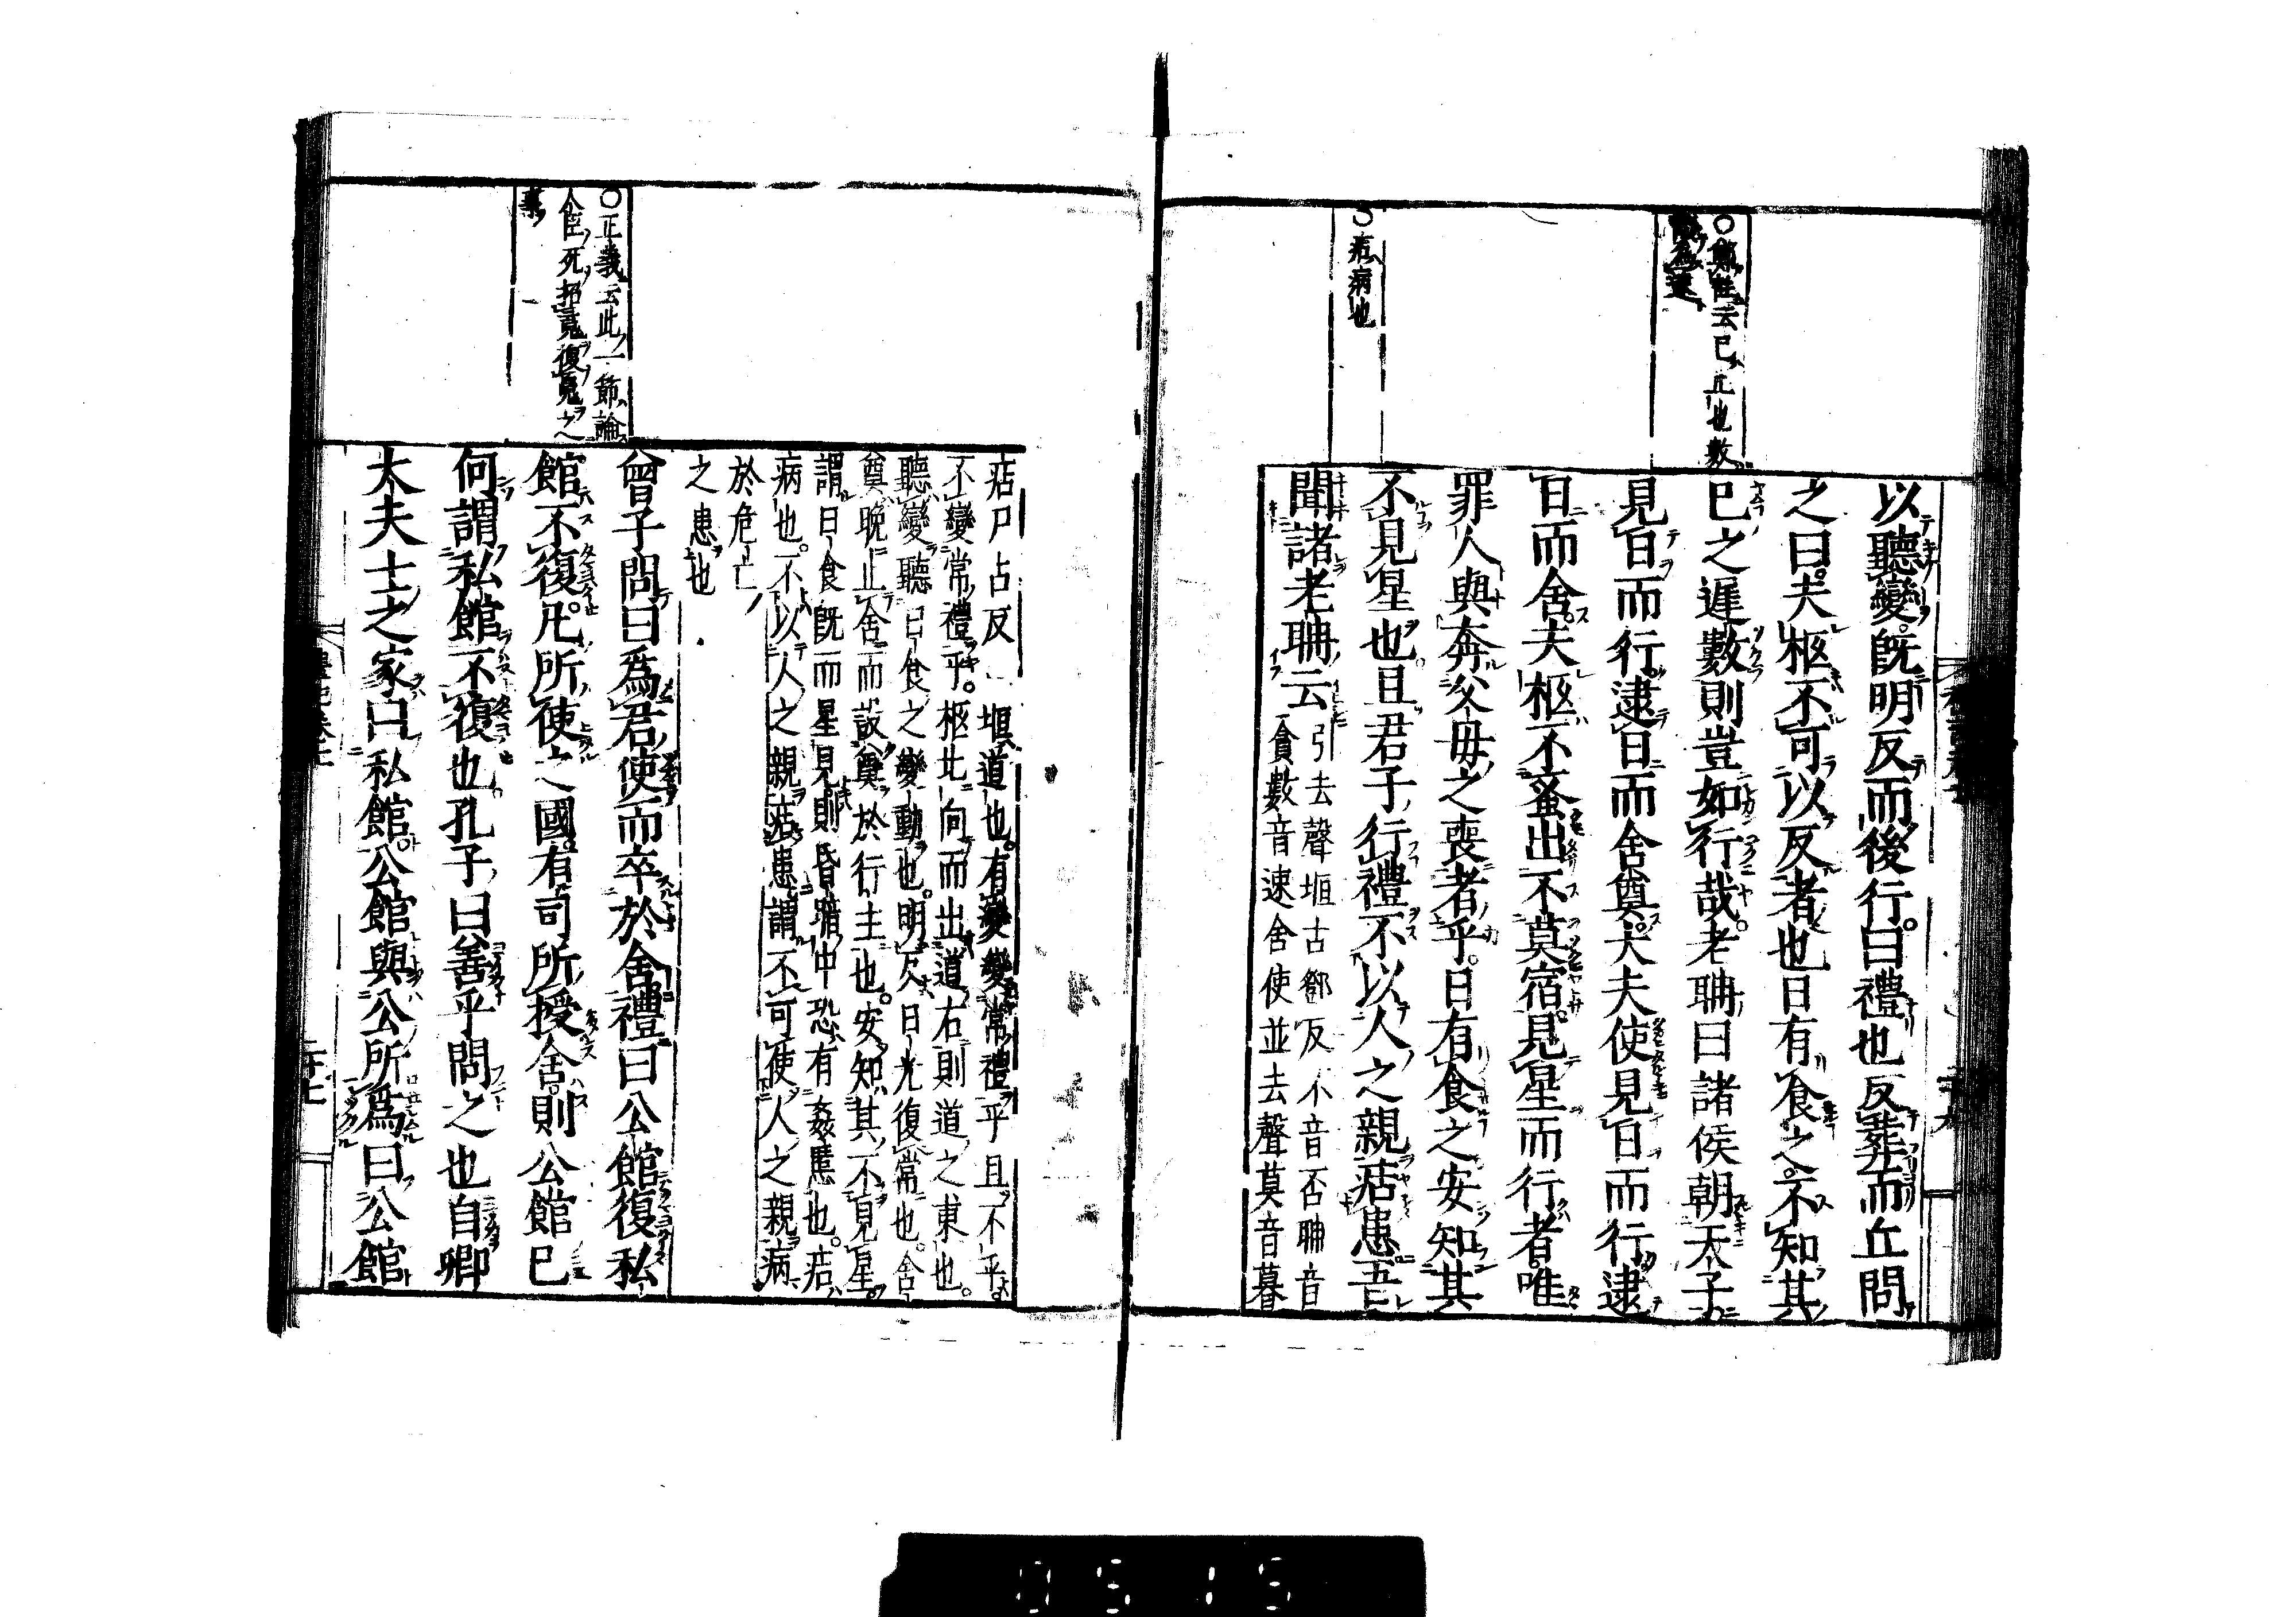 以聽變既明反而後行曰禮也反葬而丘問
之曰夫柩不可以反者也日有食之不知其
已之遲數則豈如行哉老聃曰諸侯朝天子
見日而行逮日而舍奠大夫使見日而行逮
日而舍夫柩不蚤出不莫宿見星而行者唯
罪人與奔父母之喪者乎日有食之安知其
不見星也且君子行禮不以人之親痁患吾
聞諸老聃云
引去聲堩古鄧反不音否聃音
貪數音速舍使並去聲莫音暮
○鄭註云已止也數
○痁病也
痁尸占反 堩道也有變變常禮乎且不乎
不變常禮乎柩北向而出道右則道之東也
聽變聽日食之變動也明反日光復常也舍
奠晚止舍而設奠於行主也安知其不見星
謂日食既而星見則昏暗中恐有姦慝也痁
病也不以人之親痁患謂不可使人之親病
於危亡
之患也
曾子問曰爲君使而卒於舍禮曰公館復私
館不復凡所使之國有司所授舍則公館已
何謂私館不復也孔子曰善乎問之也自卿
大夫士之家曰私館公館與公所爲曰公館
○正義云此一節論
人臣死招魂復魄之